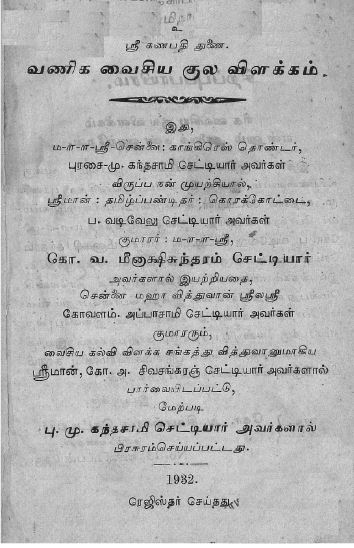 உ
ஸ்ரீ கணபதி துணை.
வணிக வைசிய குல விளக்கம்.
இது,
ம-ள-ள-ஸ்ரீ-சென்னை: காங்கிரெஸ் தொண்டர்,
புரசை-மு. கந்தசாமி செட்டியார் அவர்கள்
விருப்ப முயற்சியால்,
ஸ்ரீமான்: தமிழ்ப்பண்டிதர்: கொரக்கோட்டை,
ப. வடிவேலு செட்டியார் அவர்கள்
குமாரர்: ம-ள-ள-ஸ்ரீ,
கோ. வ. மீனாக்ஷிசுந்தரம் செட்டியார்
அவர்களால் இயற்றியதை,
சென்னை மஹா வித்துவான் ஸ்ரீலஸ்ரீ
கோவளம். அப்பாசாமி செட்டியார் அவர்கள்
குமாரரும்,
வைசிய கல்வி விளக்க சங்கத்து வித்துவானுமாகிய
ஸ்ரீமான், கோ. அ. சிவசங்கரஞ் செட்டியார் அவர்களால்
பார்வையிடப்பட்டு,
மேற்படி
பு. மு. கந்தசாமி செட்டியார் அவர்களால்
பிரசுரம்செய்யப்பட்டது.
1932.
ரெஜிஸ்தர் செய்தது